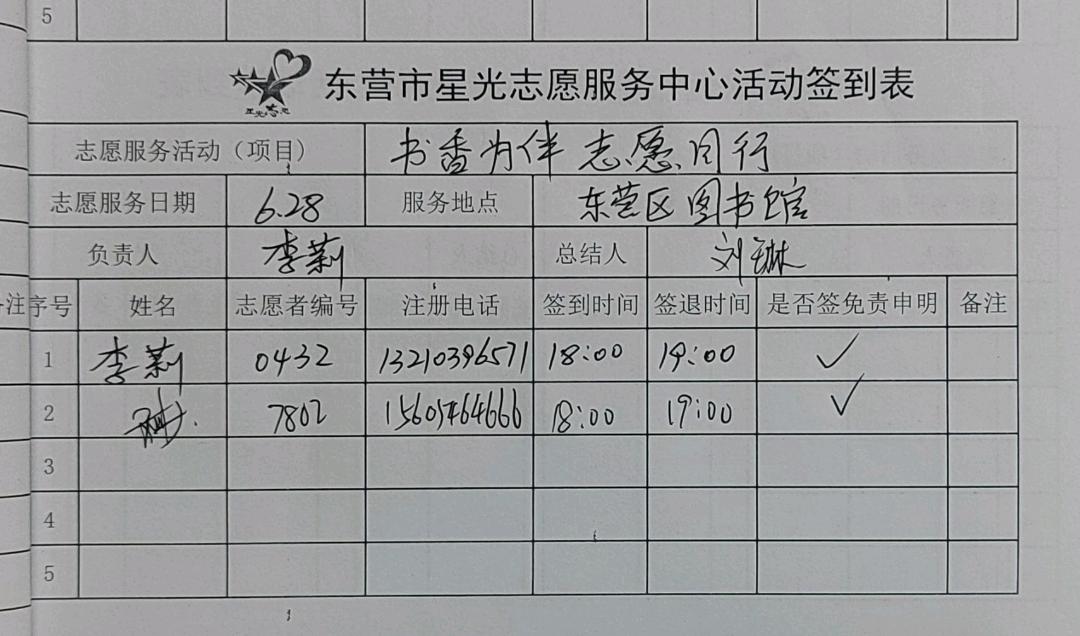 5
星光志愿
东营市星光志愿服务中心活动签到表
志愿服务活动（项目） 书香为伴 志愿同行
志愿服务日期 6.28 服务地点 东营区图书馆
负责人 李莉 总结人 刘琳
备注 序号 姓名 志愿者编号 注册电话 签到时间 签退时间 是否签免责申明 备注
1 李莉 0432 13210396571 18:00 19:00 ✓
2 7802 15605464666 18:00 19:00 ✓
3
4
5